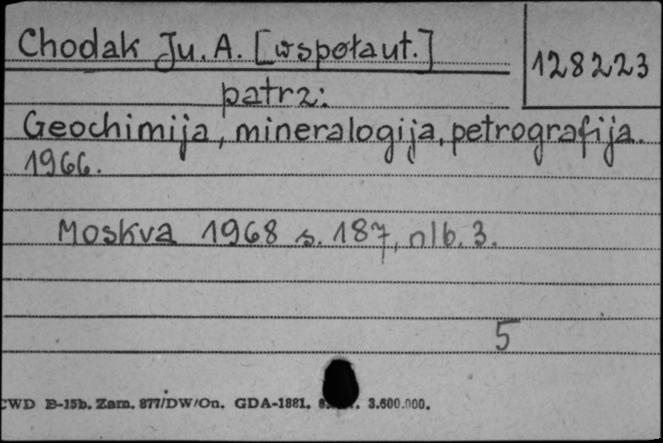 Chodak Ju. A. [współaut.]
128223
patrz:
Geochimija, mineralogija, petrografija.
1966.
Moskva 1968 s. 187, nlb. 3.
5
CWD B-15b. Zam. 877/DW/On. GDA-1881. 3.600.000.